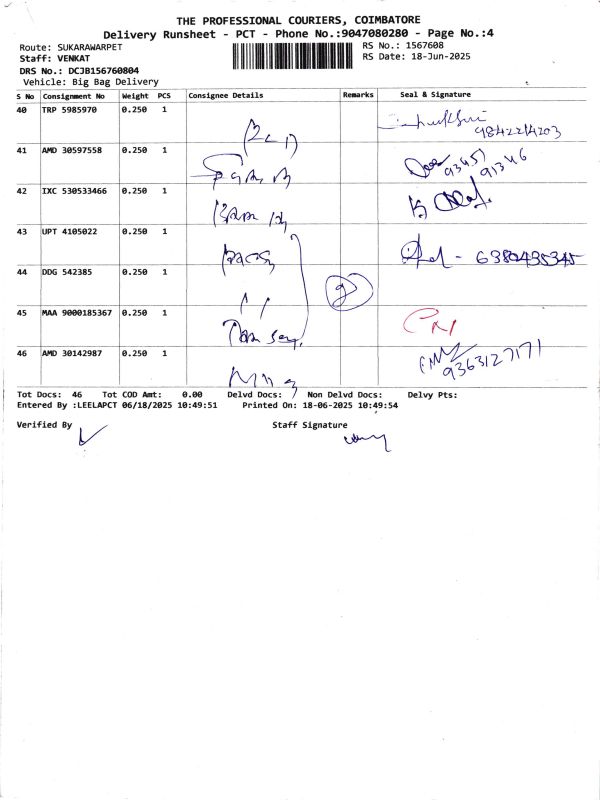 THE PROFESSIONAL COURIERS, COIMBATORE
Delivery Runsheet - PCT - Phone No.:9047080280 - Page No.:4
Route: SUKARAWARPET
RS No.: 1567608
Staff: VENKAT
RS Date: 18-Jun-2025
DRS No.: DCJB156760804
Vehicle: Big Bag Delivery
S No Consignment No Weight PCS Consignee Details Remarks Seal & Signature
40 TRP 5985970 0.250 1
41 AMD 30597558 0.250 1
93457
91346
42 IXC 530533466 0.250 1
43 UPT 4105022 0.250 1
6380435345
44 DDG 542385 0.250 1
45 MAA 9000185367 0.250 1
46 AMD 30142987 0.250 1
9363127171
Tot Docs: 46 Tot COD Amt: 0.00 Delvd Docs: Non Delvd Docs: Delvy Pts:
Entered By :LEELAPCT 06/18/2025 10:49:51 Printed On: 18-06-2025 10:49:54
Verified By Staff Signature